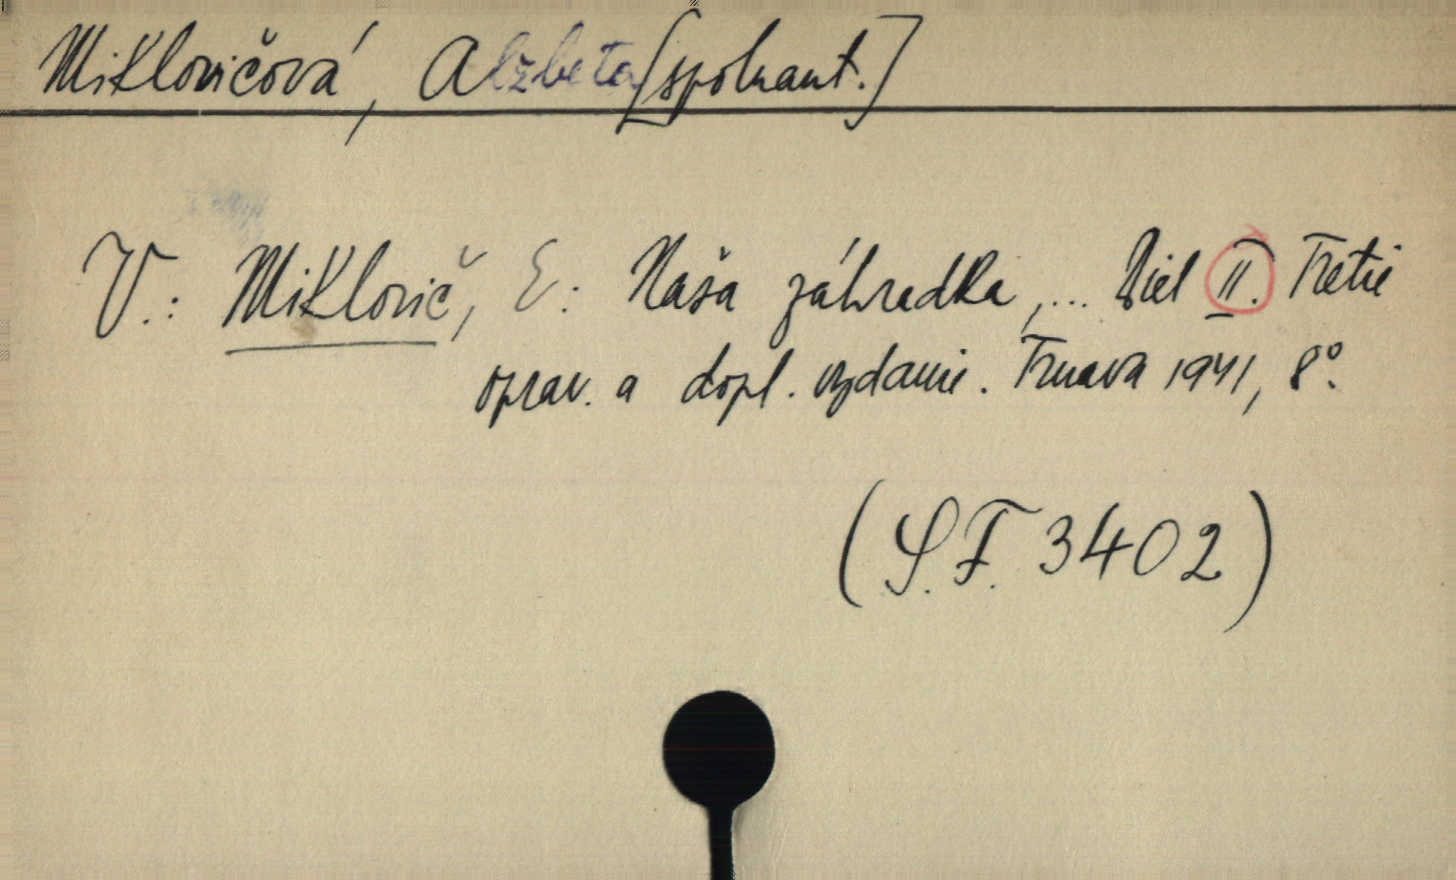 Miklovičová, Alzbeta [spoluaut.]
V.: Miklovič, E: Naša záhradka,... Diel II. Tretie
oprav. a dopl. vydanie. Trnava 1941, 8°.
(S.F. 3402)